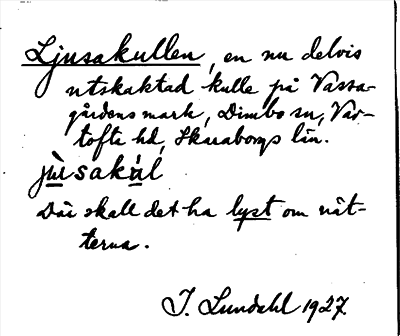 Ljusakullen, en nu delvis
utskaktad kulle på Vässa-
gårdens mark, Dimbo sn, Var-
tofta hd, Skaraborgs län.
jùsakàl
Där skall det ha lyst om nät-
terna.
J. Lundahl 1927.